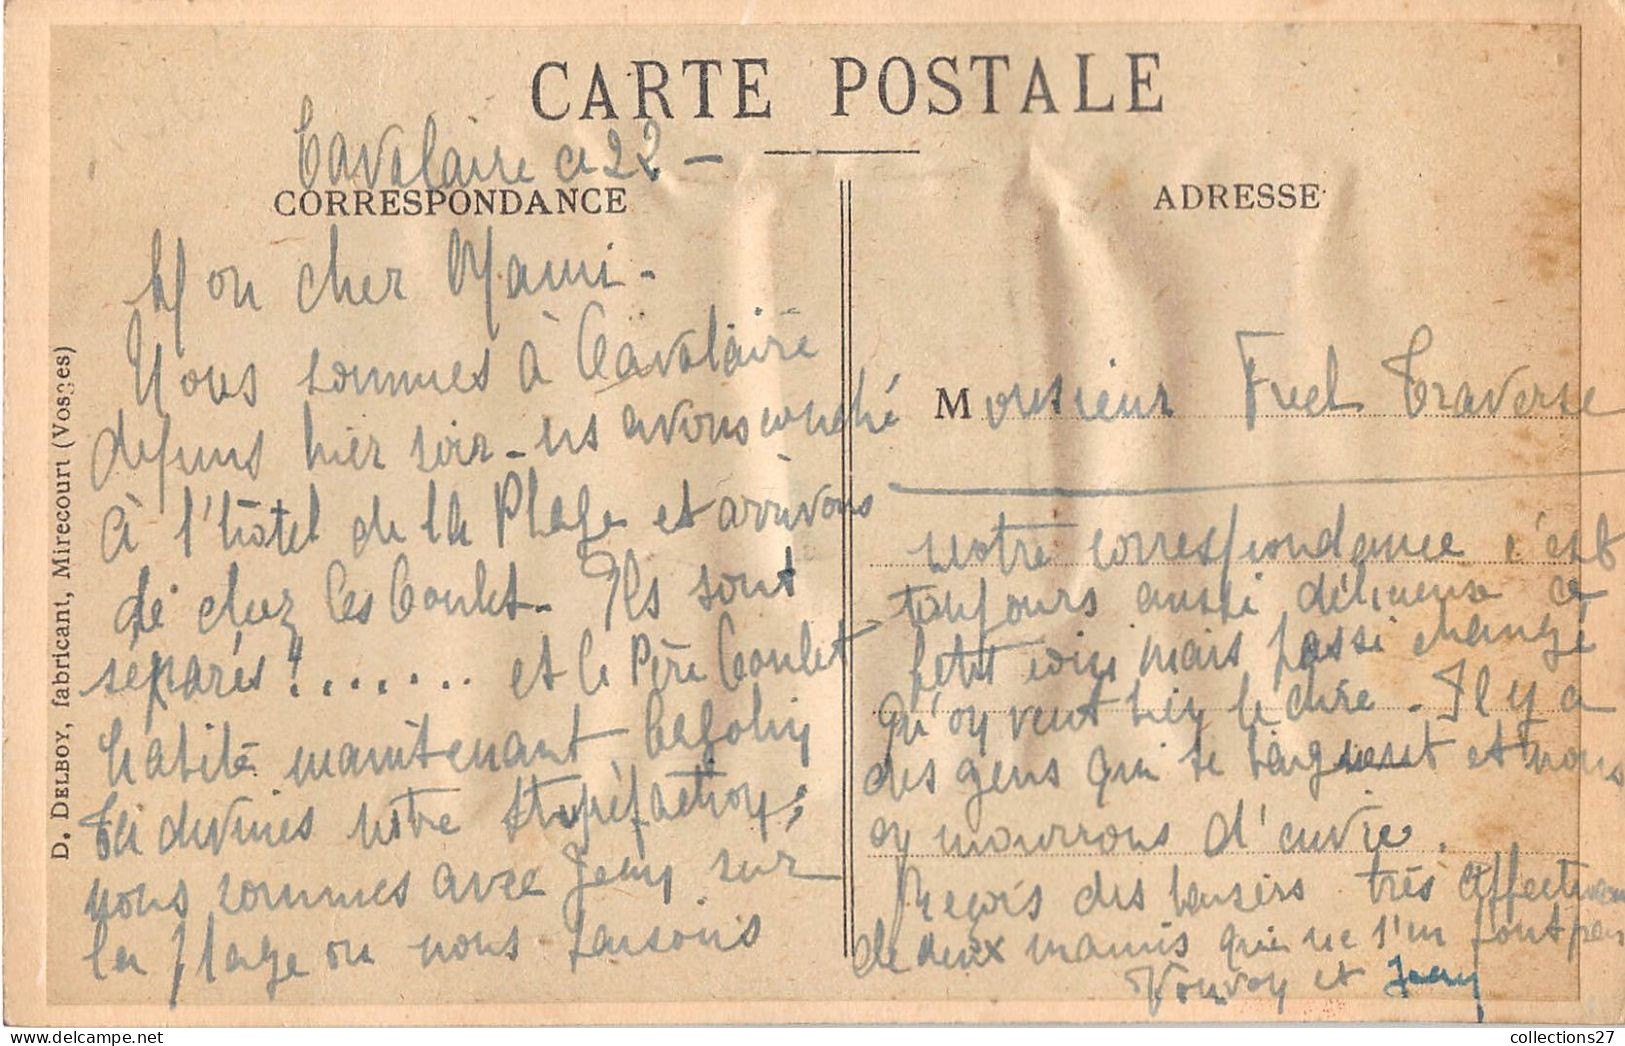 CARTE POSTALE
Cavalaire ce 22 -
CORRESPONDANCE
Mon cher Mami -
Nous sommes à Cavalaire
depuis hier soir - ns avons couché
à l'hôtel de la Plage et arrivons
de chez les Coulet - Ils sont
séparés !....... et le Père Coulet
habite maintenant Cogolin
tu devines notre stupéfaction,
nous sommes avec Jany sur
la plage ou nous faisons
ADRESSE
Monsieur Traverse
notre correspondance c'est
toujours aussi délicieux ce
petit coin mais changé
qu'on veut bien le dire. Il y a
des gens qui se baignent et nous
en mourrons d'envie.
Reçois des baisers très
de deux mamis qui ne s'en font pas
et Jany
D. DELBOY, fabricant, Mirecourt (Vosges)
collections27